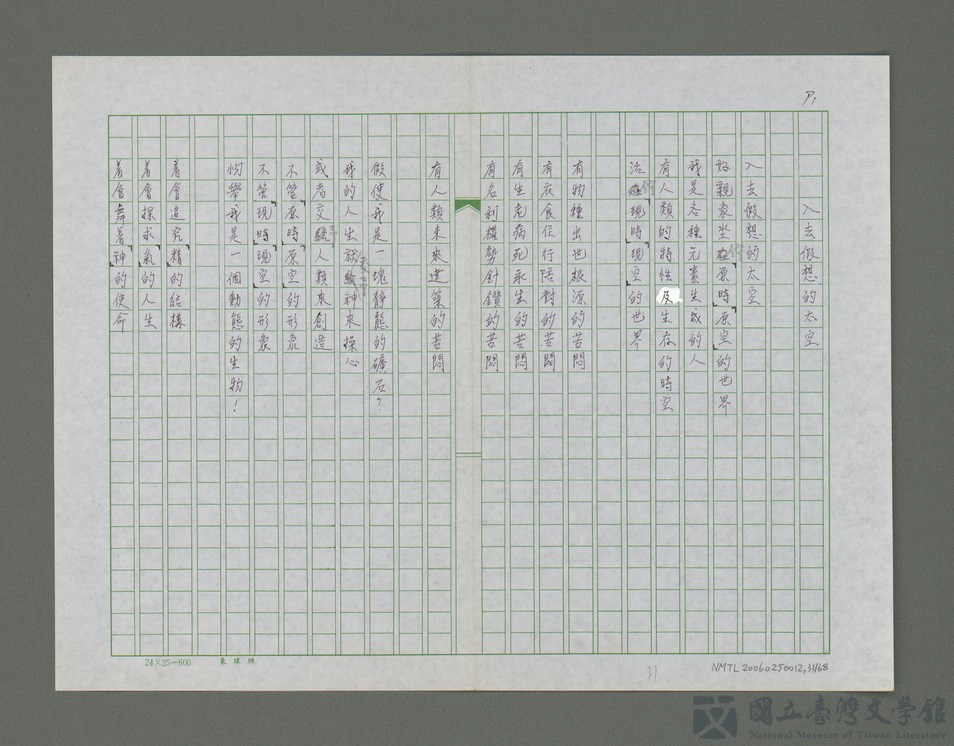 P1
入去假想的太空
入去假想的太空
好親象坐佇「原時」「原空」的世界
我是各種元素生成的人
有人類的特性及生存的時空
活佇「現時」「現空」的世界
有物種出世根源的苦悶
有衣食住行陪對的苦悶
有生老病死永生的苦悶
有名利權勢針鑽的苦悶
有人類未來建築的苦悶
假使我是一塊靜態的礦石?
我的人生就神來操心
或者交人類來創造
不管「原時」「原空」的形象
不管「現時」「現空」的形象
怐舉我是一個動態的生物!
著會追究「精」的結構
著會探求「氣」的人生
著會舞著「神」的使命
24×25=600
31
NMTL20060250012,31/68
國立臺灣文學館
National Museum of Taiwan Literature